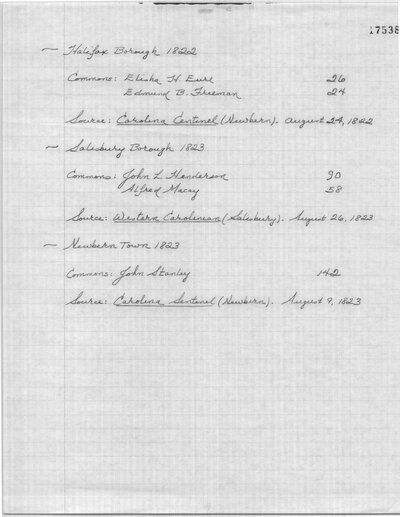 17538
— Halifax Borough 1822
Commons: Elisha H. Eure 26
Edmund B. Freeman 24
Source: Carolina Centinel (Newbern). August 24, 1822
— Salisbury Borough 1823
Commons: John L. Henderson 90
Alfred Macay 58
Source: Western Carolinian (Salisbury). August 26, 1823
— Newbern Town 1823
Commons: John Stanley 142
Source: Carolina Sentinel (Newbern). August 9, 1823